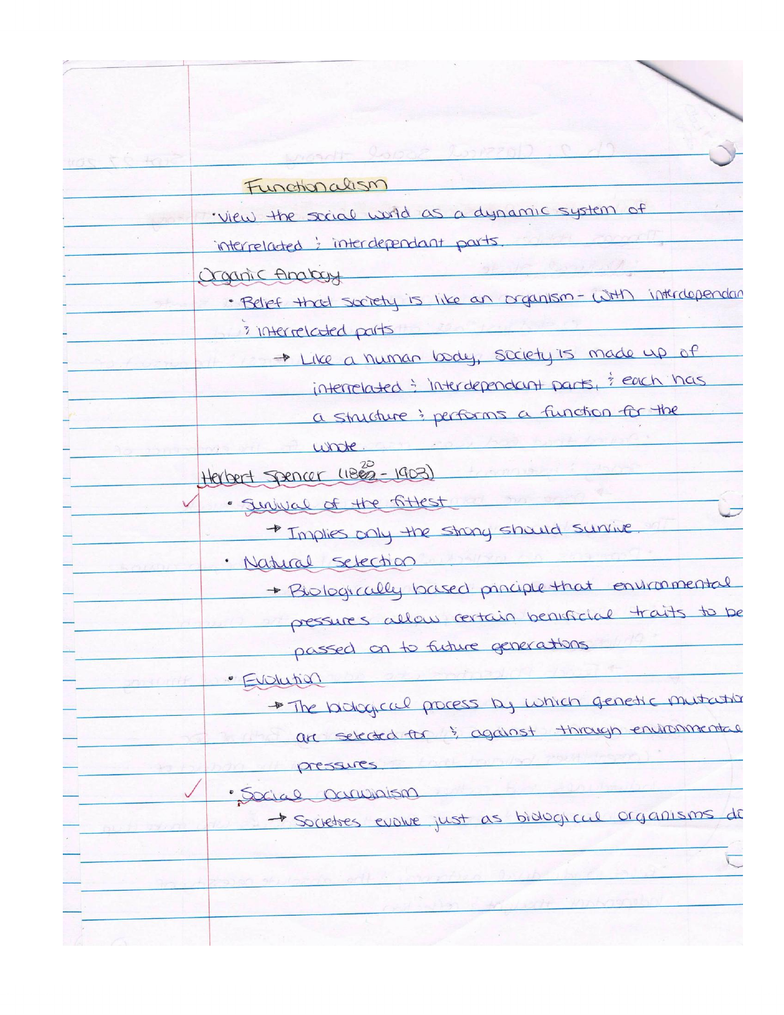 Functionalism
• View the social world as a dynamic system of
interrelated & interdependant parts.
Organic Analogy
• Belief that society is like an organism - with interdependan
& interrelated parts
→ Like a human body, society is made up of
interrelated & interdependant parts, & each has
a structure & performs a function for the
whole.
Herbert Spencer (1820 - 1903)
✓ • Survival of the fittest
→ Implies only the strong should survive.
• Natural selection
→ Biologically based principle that environmental
pressures allow certain benificial traits to be
passed on to future generations
• Evolution
→ The biological process by which genetic mutation
are selected for & against through environmental
pressures.
✓ • Social Darwinism
→ Societies evolve just as biological organisms do